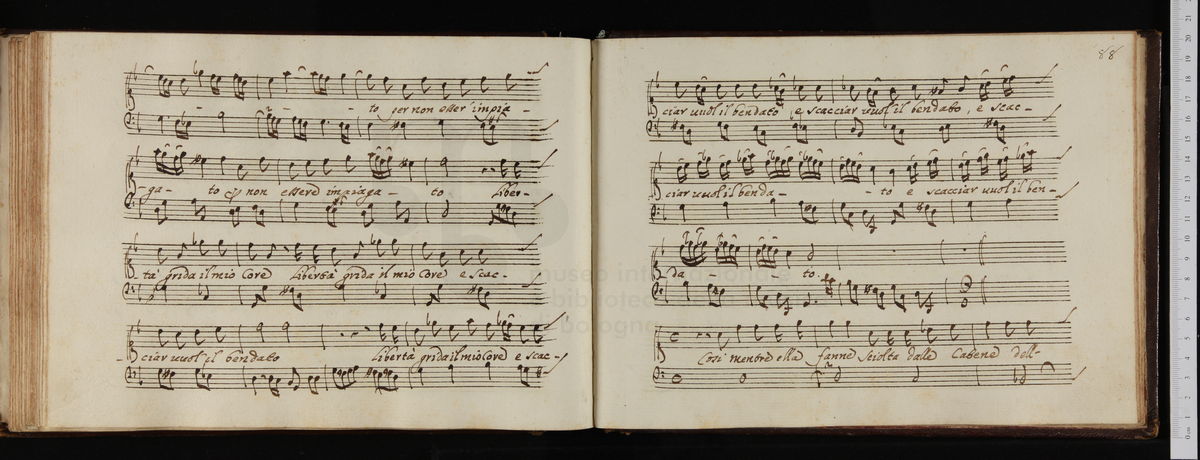 - - - to per non esser impia-
ga- to p non essere impiaga- to Liber-
ta' grida il mio Core Liberta' grida il mio Core e scac-
ciar vuol il bendato Liberta' grida il mio Core e scac-
88
ciar vuol il bendato e scacciar vuol il bendato, e scac-
ciar vuol il benda- - to e scacciar vuol il ben-
da - to.
Cosi mentre ella fanne sciolta dalle Catene dell-
museo internazionale
e biblioteca della
di bologna